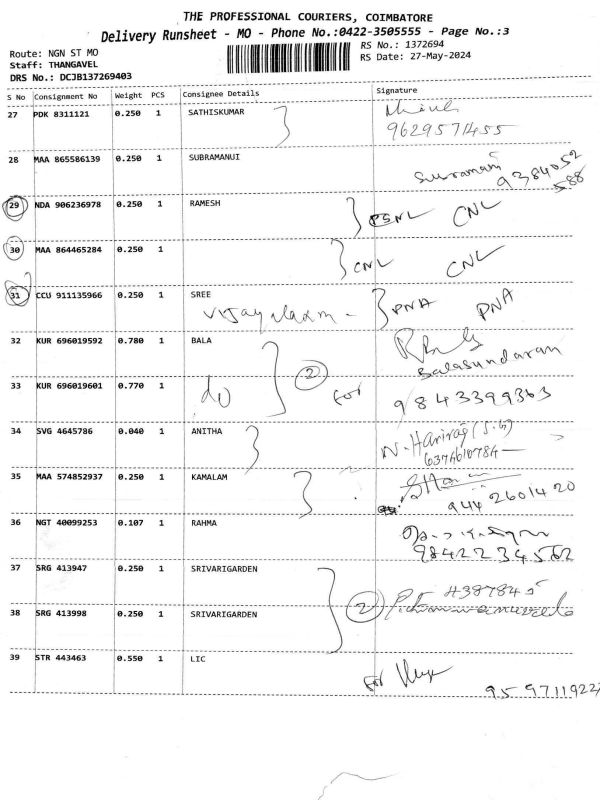 THE PROFESSIONAL COURIERS, COIMBATORE
Delivery Runsheet - MO - Phone No.:0422-3505555 - Page No.:3
Route: NGN ST MO
RS No.: 1372694
Staff: THANGAVEL
RS Date: 27-May-2024
DRS No.: DCJB137269403
S No Consignment No Weight PCS Consignee Details Signature
27 PDK 8311121 0.250 1 SATHISKUMAR
9629571455
28 MAA 865586139 0.250 1 SUBRAMANUI
9384052
588
29 NDA 906236978 0.250 1 RAMESH CNL
30 MAA 864465284 0.250 1 CNL CNL
31 CCU 911135966 0.250 1 SREE PNA PNA
32 KUR 696019592 0.780 1 BALA
Balasundaran
33 KUR 696019601 0.770 1 do 2 for 9843399363
34 SVG 4645786 0.040 1 ANITHA
35 MAA 574852937 0.250 1 KAMALAM
944 2601420
36 NGT 40099253 0.107 1 RAHMA
9842234562
37 SRG 413947 0.250 1 SRIVARIGARDEN
38 SRG 413998 0.250 1 SRIVARIGARDEN 2
39 STR 443463 0.550 1 LIC for
959711922